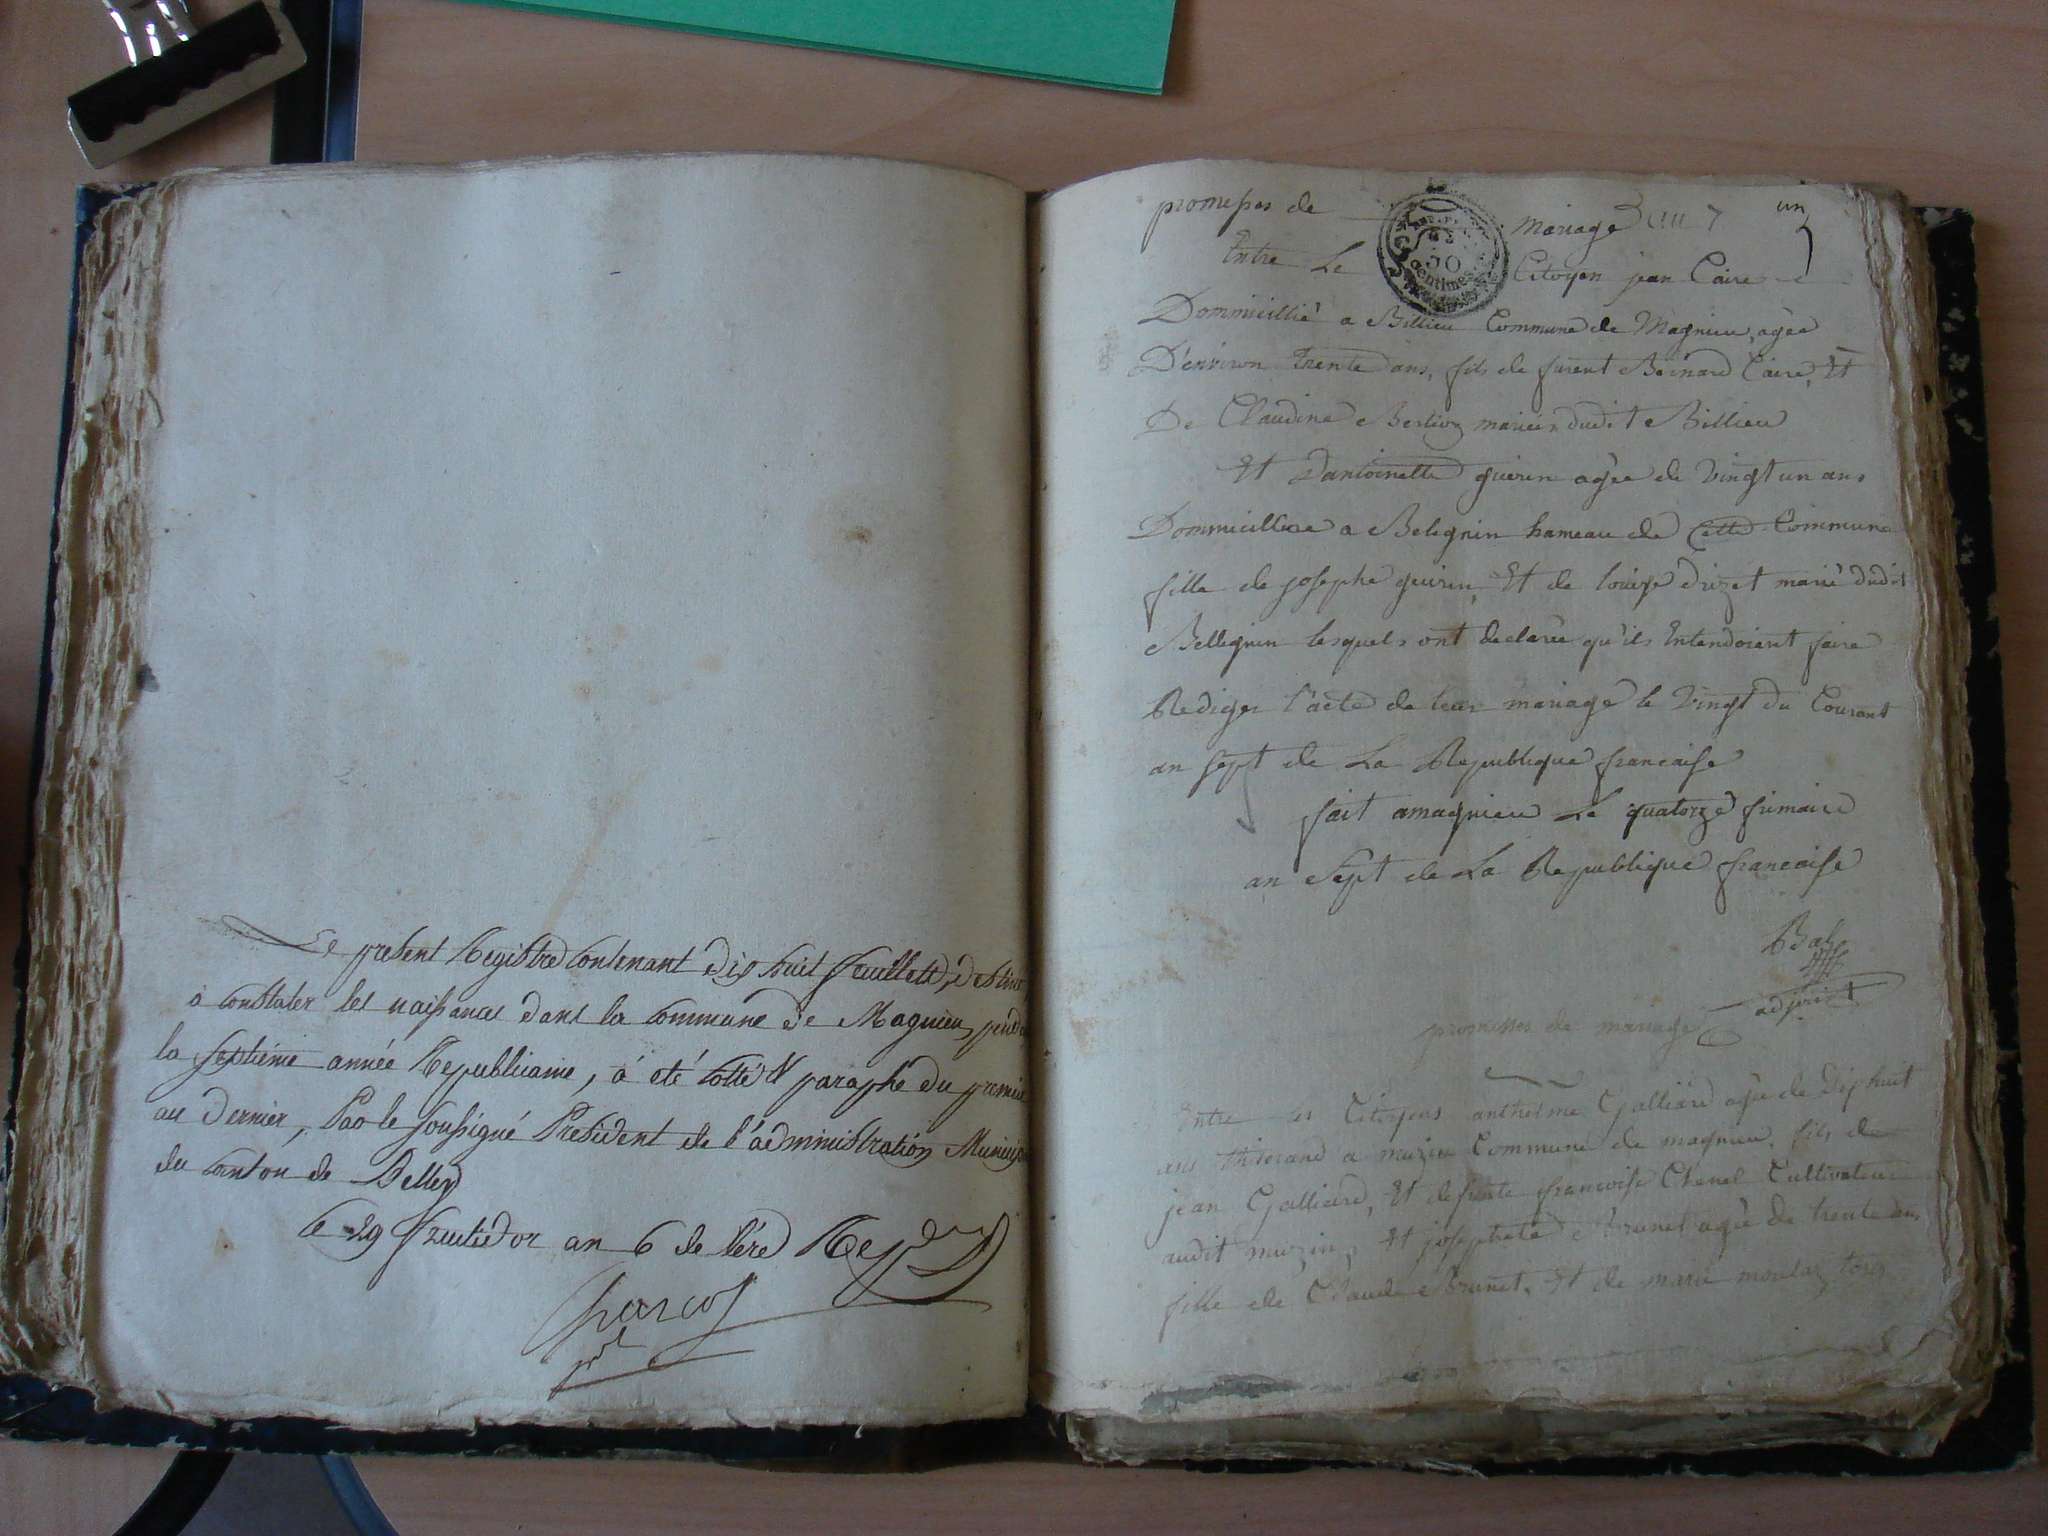 Le present Registre contenant dix huit feuillets, destiné
a constater les naissances dans la commune de Magnieu, pend
la septiéme année Republicaine, á été cotté & paraphé du premier
au dernier, Par le soussigné President de l'administration Municip
du canton de Belley
le 29 fructidor an 6 de l'ére Rep
promesses de mariage an 7
un
50 centimes
Entre Le Citoyen jean Caire
Dommicillié a Billieu Commune de Magnieu, agée
D'environ trente ans, fils de furent Bernard Caire, Et
De Claudine Berlioz mariés dudit Billieu
Et D'antoinette guerin agée de vingt un ans
Dommicilliee a Belegnin hameau de Cette Commune
fille de josephe guerin, Et de louise drizet marié dudit
Bellegnin lesquels ont declarée qu'ils Entendoient faire
Rediger l'acte de leur mariage le vingt du Courant
an sept de La Republique francaise
fait amagnieu Le quatorze frimaire
an Sept de La Republique francaise
adjoint
promesses de mariage
Entre les Citoyens anthelme Galliard agée de dix huit
ans a muzin Commune de magnieu, fils de
jean Galliard, Et defunte francoise Chanel Cultivateur
audit muzin, Et josephete Brunet agée de trente ans
fille de Claude Brunet, Et de marie